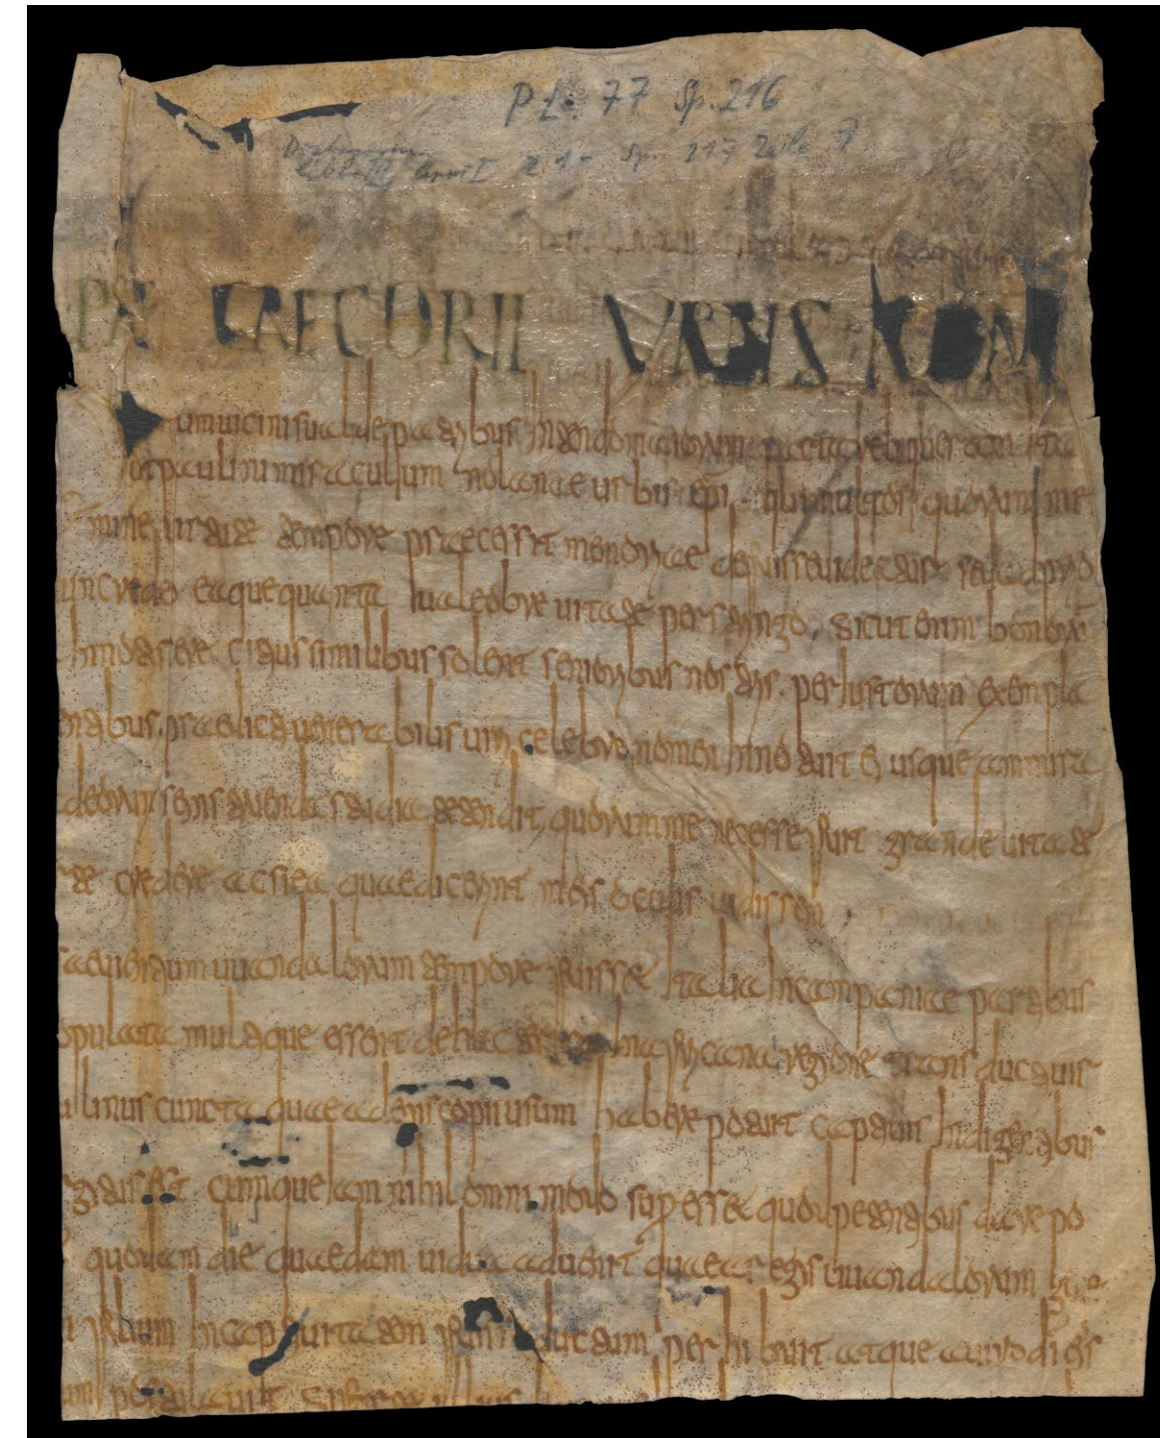 P. L. 77 Sp. 216
Sp. 217 Zeile 7
PAE GREGORII URBIS ROM
um uicinis ualde patribus intendo maiorum facta reliqueram ita
ut paulini miraculum nolanae urbis epi. qui multos quorum me
mini uirtute et tempore praecessit memoriae defuisse uideatur sed ad prio
nunc redeo eaque quanta ualeo breuitate perstringo. sicut enim bonorum
innotescere citius similibus solent senioribus nostris. per iustorum exempla
entibus. praedicti uenerabilis uiri celebre nomen innotuit eiusque ammira
deorum se instruenda studia tetendit, quorum me necesse fuit grandeuita te
te credere ac si ea quae dicerent meis oculis uidissem
saeuientium uuandalorum tempore fuisset italia in campaniae partibus
opulata multique essent de hac terra in africana regione transducti uir
ulinus cuncta quae ad episcopii usum habere potuit captiuis indigentibus
rgitus est cumque iam nihil omnimodo superesset quod petentibus dare po
quodam die quaedam uidua aduenit quae a regis uuandalorum
filium in captiuitatem fuisse ductum perhibuit atque a uiro di eius
um postulauit